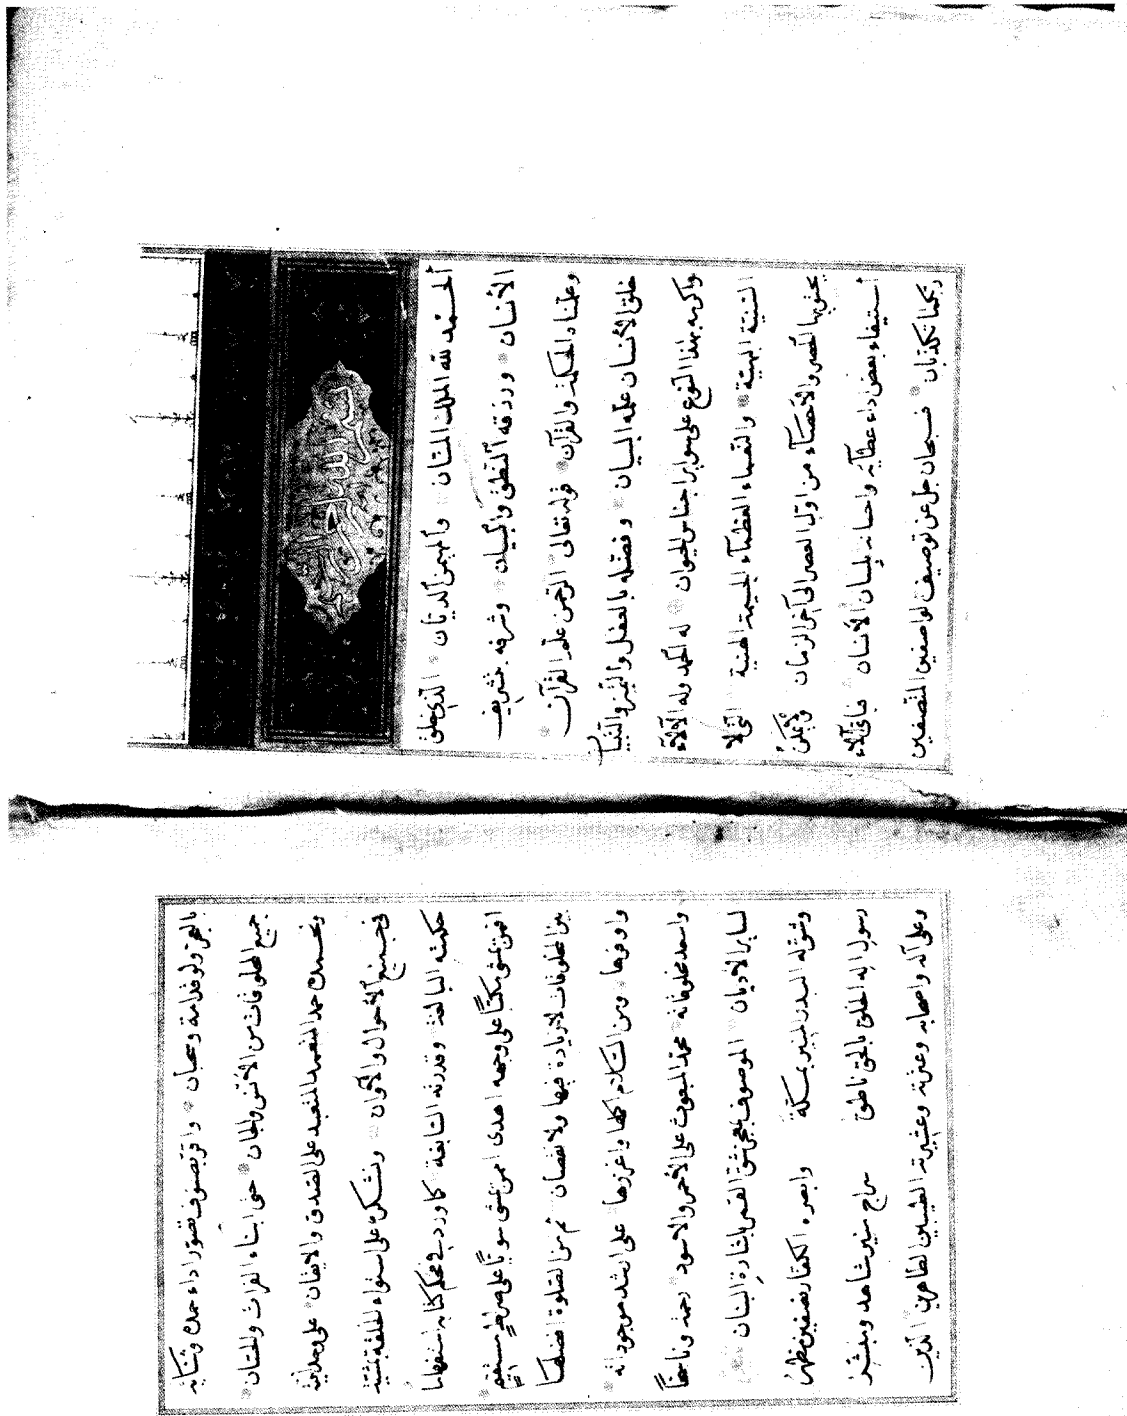 بسم الله الرحمن الرحيم
الحمد لله الملك المنان والمهيمن الديان الذي خلق
الانسان ورزقه النطق والبيان وشرفه بتشريف
وعلمنا والحكمة والقرآن قوله تعالى الرحمن علم القرآن
خلق الانسان علمه البيان وفضله بالعقل والتميز والتبيان
واكرمه بهذا النوع على سواير اجناس الحيوان له الحمد وله الآلاء
السنية البهية والنعماء العظماء الجسيمة الهنية التي لا
يحيط بها الحصر والاحصاء من اول العصر الى آخر الزمان ولا يمكن
استيفاء بعض داء عطائه واحسانه بلسان الانسان فباي آلاء
ربكما تكذبان فسبحان جل عن توصيف الواصفين المتصفين
بالعجز ولو قدامة وسحبان واقر بصنوف قصور اداء حمده وثنائه
جميع المخلوقات من الانس والجان حتى ابناء الفرات والمتان
ونحمده حمد المتعبد على الصدق والايقان على وحدانيته
في جميع الاحوال والاكوان ونشكره على استواء الخلقة بمشيئة
حكمته البالغة وقدرته السابغة كما ورد في محكم كتابه استفهاما
افمن يمشي مكبا على وجهه اهدى امن يمشي سويا على صراط مستقيم
بين المخلوقات لا زيادة فيها ولا نقصان ثم من الصلوة افضلها
واوفرها ومن السلام اكملها واغزرها على ارشد موجوداته
واسعد مخلوقاته محمد المبعوث على الاحمر والاسود رحمة وناسخا
لساير الاديان الموصوف بمعجز شق القمر باشارة البنان
وشق له البدر المنير بمكة وابصره الكفار نصفين ظهر
رسول اله الخلق بالحق ناطق سراج منير شاهد ومبشر
وعلى آله واصحابه وعترته وعشيرته الطيبين الطاهرين الذين